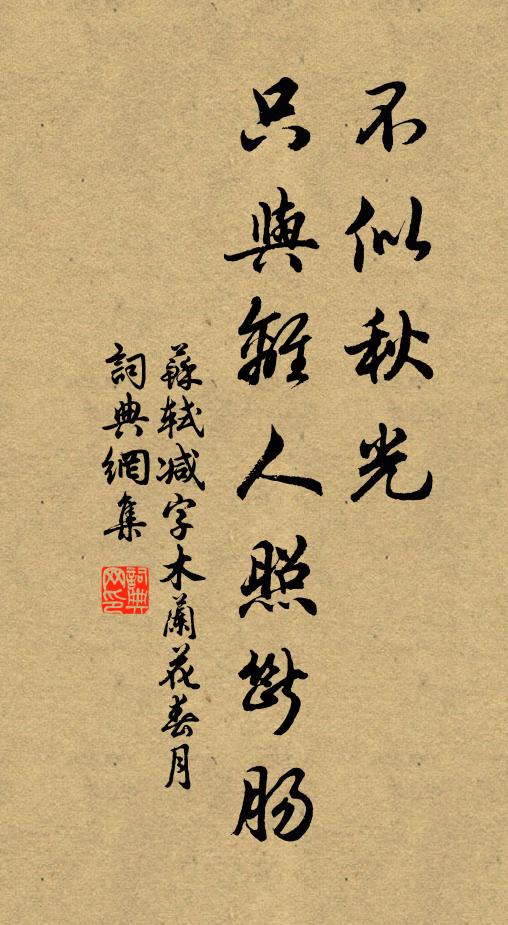 不似秋光
只與離人照斷腸
蘇軾減字木蘭花春月
詞典網集
詞典網印